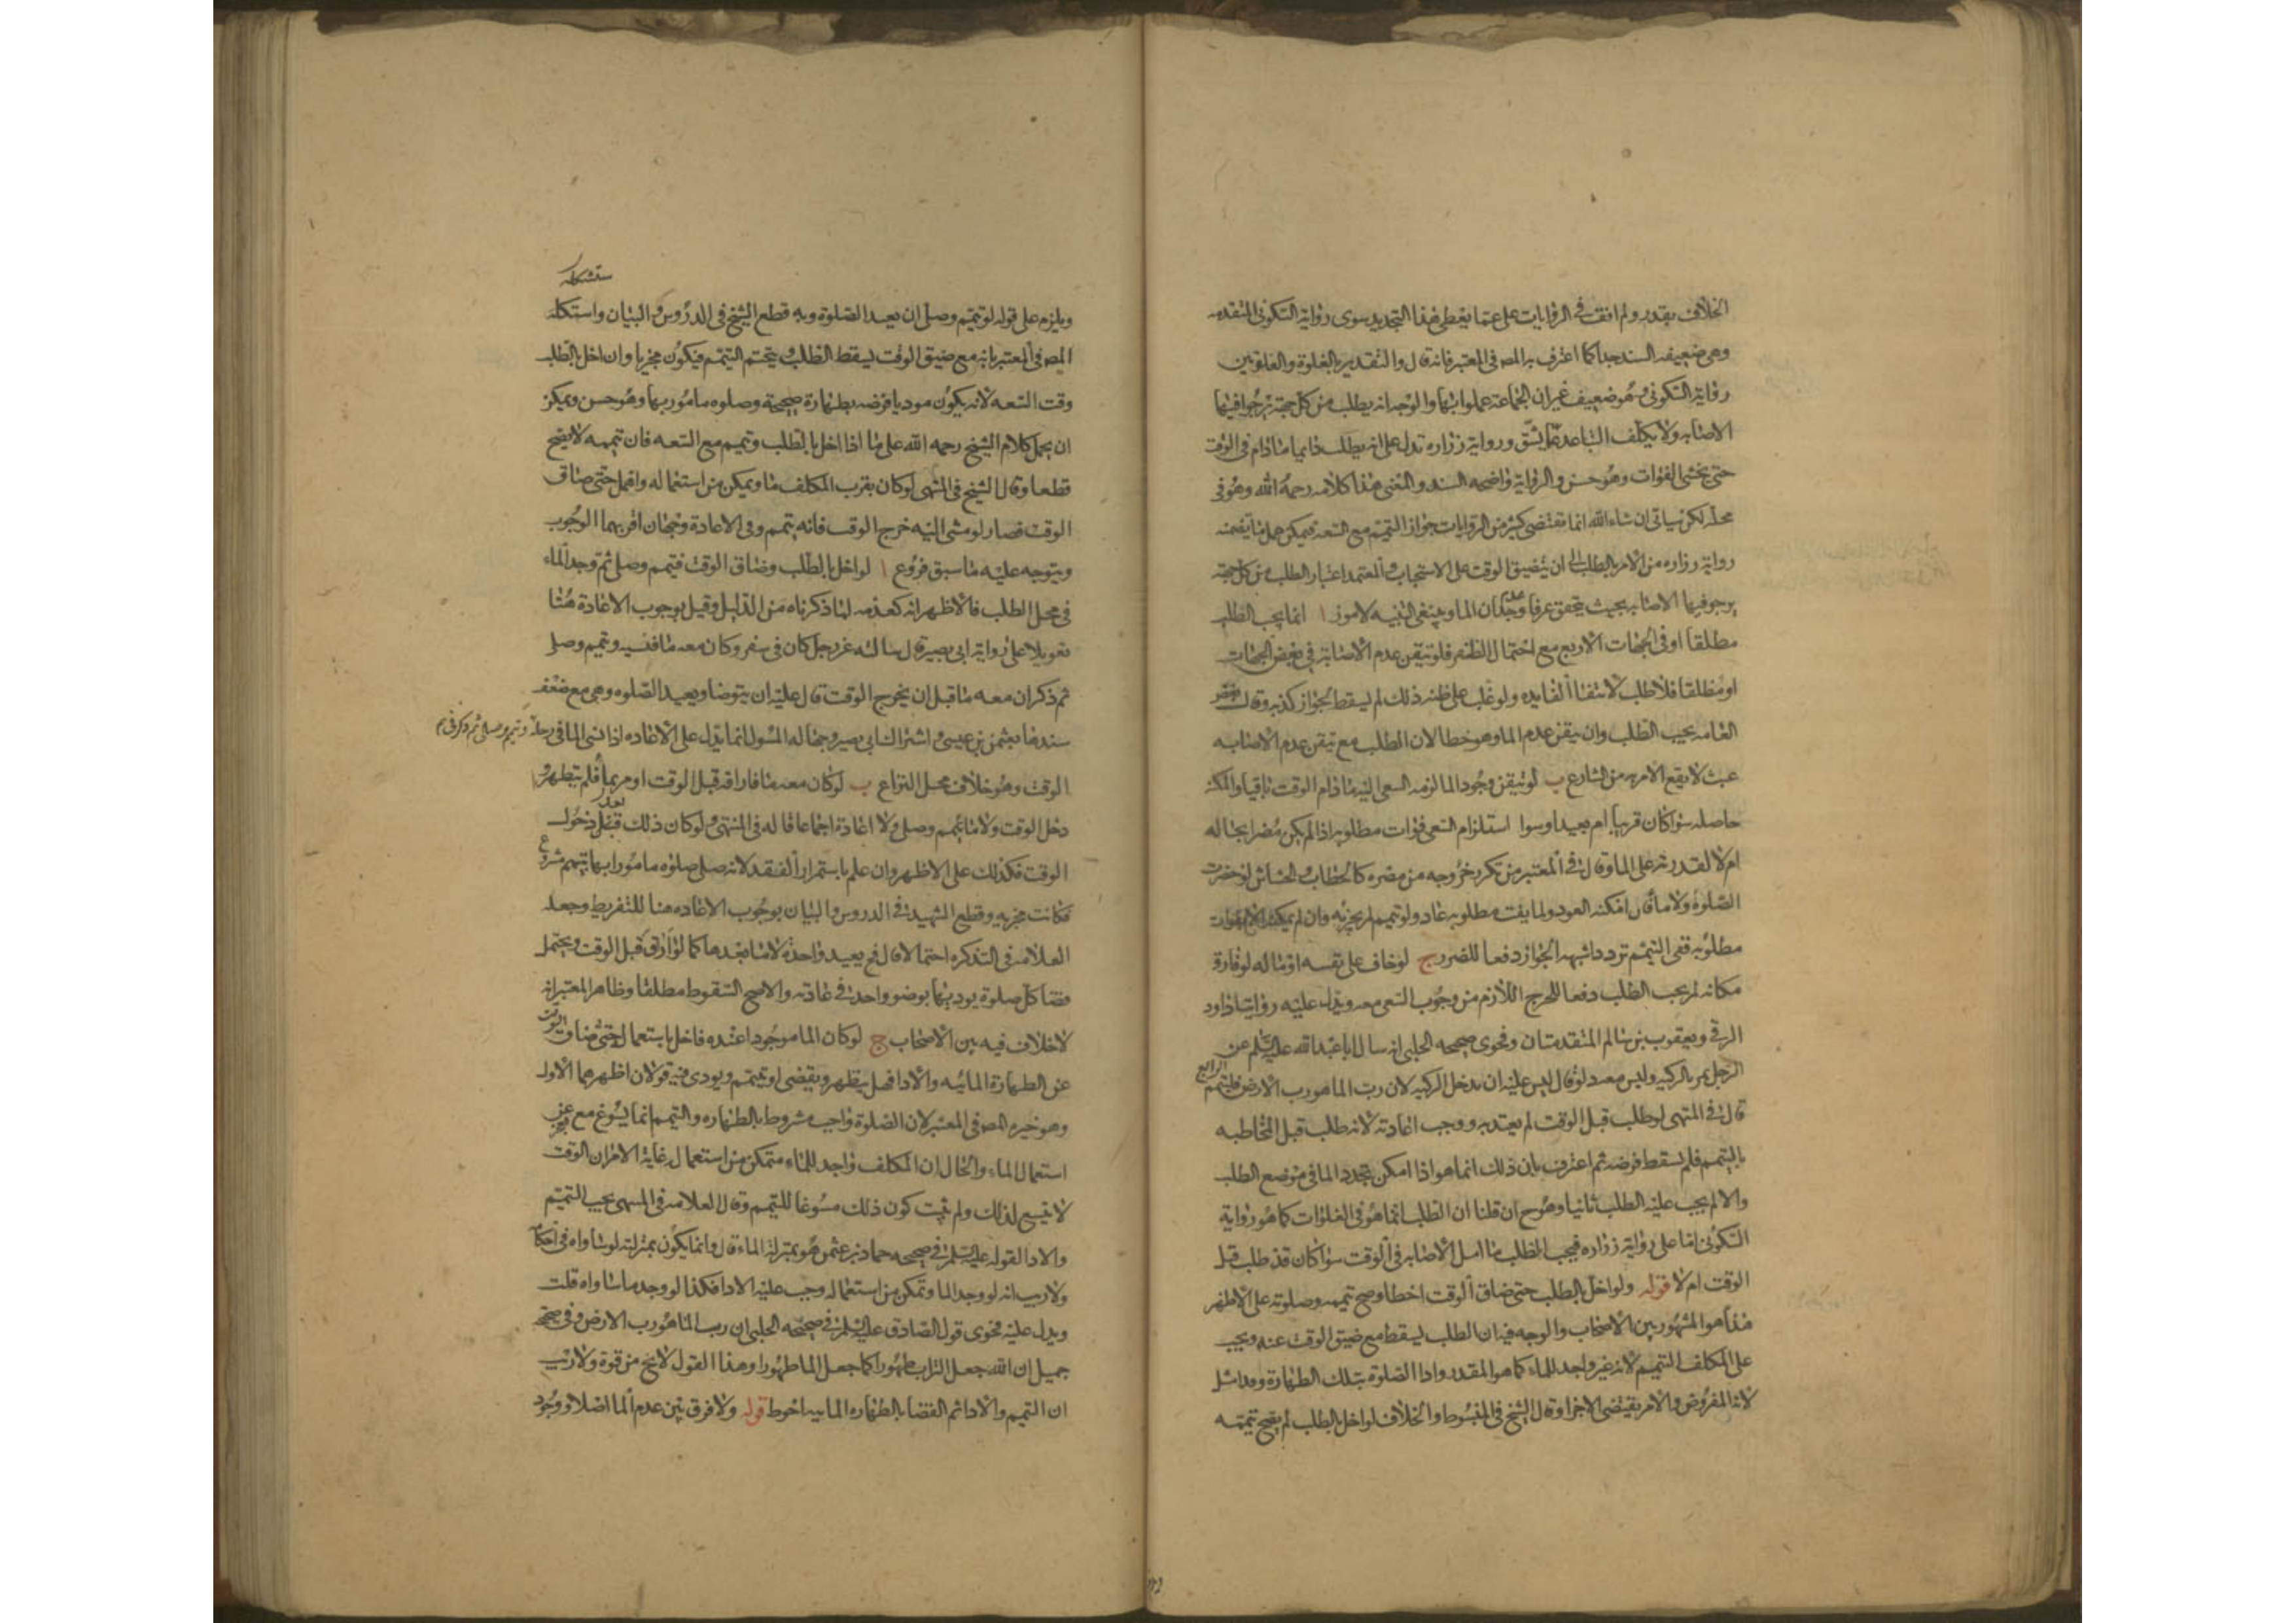 الخلاف بقدر ولم اقف في الروايات على ما يعطى هذا التحديد سوى رواية السكونى المتقدمه
وهى ضعيفه السند جدا كما اعترف به المص فى المعتبر فانه قال والتقدير بالغلوة والغلوتين
رواية السكونى وهو ضعيف غير ان الجماعة عملوا بها والوجه انه يطلب من كل جهة يرجو فيها
الاصابه ولا يكلف التباعد بما يشق ورواية زراره تدل على انه يطلب دايما مادام فى الوقت
حتى يخشى الفوات وهو حسن والرواية واضحه السند والمعنى هذا كلامه رحمه الله وهو فى
محله لكن سياتى ان شاء الله انما تقتضى كثير من الروايات جواز التيمم مع السعة فيمكن حمل ما تضمنه
رواية زراره من الامر بالطلب الى ان يتضيق الوقت على الاستحباب والمعتمد اعتبار الطلب من كل جهة
يرجو فيها الاصابه بحيث يتحقق عرفا عدم وجدان الما وينبغى التنبيه لامور ا انما يجب الطلب
مطلقا او فى الجهات الاربع مع احتمال الظفر فلو تيقن عدم الاصابة فى بعض الجهات
او مطلقا فلا طلب لانتفا الفايده ولو غلب على ظنه ذلك لم يسقط لجواز كذبه وقال بعض
العامه يجب الطلب وان تيقن عدم الما وهو خطا لان الطلب مع تيقن عدم الاصابه
عبث لا يقع الامر به من الشارع ب لو تيقن وجود الما لزمه السعى اليه ما دام الوقت باقيا والمكنة
حاصله سوا كان قريبا ام بعيدا وسوا استلزام السعى فوات مطلوبه اذا لم يكن مضرا بحاله
ام لا لقدرته على الما وقال فى المعتبر من تكرر خروجه من مصره كالحطاب والحشاش لو حضرت
الصلوة ولا ما فان امكنه العود ولما يفت مطلوبه عاد ولو تيمم لم يجزئه وان لم يمكنه الا بفوات
مطلوبه ففى التيمم تردد اشبهه الجواز دفعا للضرر ج لو خاف على نفسه او ماله لو فارق
مكانه لم يجب الطلب دفعا للحرج اللازم من وجوب السعى معه ويدل عليه روايتا داود
الرقى ويعقوب بن سالم المتقدمتان وفحوى صحيحه الحلبى انه سال ابا عبد الله عليه السلم عن
الرجل يمر بالركيه وليس معه دلو قال ليس عليه ان يدخل الركيه لان رب الما هو رب الارض فليتيمم الرابع
قال فى المنتهى لو طلب قبل الوقت لم يعتد به ووجب اعادته لانه طلب قبل المخاطبه
بالتيمم فلم يسقط فرضه ثم اعترف بان ذلك انما هو اذا امكن تجدد الما فى موضع الطلب
والا لم يجب عليه الطلب ثانيا وهو ح ان قلنا ان الطلب انما هو فى الغلوات كما هو رواية
السكونى اما على رواية زراره فيجب الطلب ما امل الاصابه فى الوقت سوا كان قد طلب قبل
الوقت ام لا قوله ولو اخل بالطلب حتى ضاق الوقت اخطا وصح تيممه وصلوته على الاظهر
هذا هو المشهور بين الاصحاب والوجه فيه ان الطلب يسقط مع ضيق الوقت عنه ويجب
على المكلف التيمم لانه غير واجد للماء كما هو المقدر وادا الصلوة بتلك الطهارة وقد امتثل
لانه المفروض والامر يقتضى الاجزا وقال الشيخ فى المبسوط والخلاف لو اخل بالطلب لم يصح تيممه
ستشكله
ويلزم على قوله لو تيمم وصلى ان يعيد الصلوة وبه قطع الشيخ فى الدروس والبيان واستكله
المص فى المعتبر بانه مع ضيق الوقت يسقط الطلب ويتحتم التيمم فيكون مجزيا وان اخل بالطلب
وقت السعه لانه يكون موديا فرضه بطهارة صحيحة وصلوه مامور بها وهو حسن ويمكن
ان يحمل كلام الشيخ رحمه الله على ما اذا اخل بالطلب وتيمم مع السعه فان تيممه لا يصح
قطعا وقال الشيخ فى المنتهى لو كان بقرب المكلف ما ويمكن من استعماله واهمل حتى ضاق
الوقت فصار لو مشى اليه خرج الوقت فانه يتيمم وفى الاعادة وجهان اقربهما الوجوب
ويتوجه عليه ما سبق فروع ا لو اخل بالطلب وضاق الوقت فتيمم وصلى ثم وجد الماء
فى محل الطلب فالاظهر انه كعدمه لما ذكرناه من الدليل وقيل بوجوب الاعادة هنا
تعويلا على رواية ابى بصير قال سالته عن رجل كان فى سفر وكان معه ما فنسيه وتيمم وصلى
ثم ذكر ان معه ما قبل ان يخرج الوقت قال عليه ان يتوضا ويعيد الصلوه وهى مع ضعف
سندها بعثمن بن عيسى واشتراك ابى بصير وجهالة المسول انما تدل على الاعاده اذا نسى الما فى رحله وتيمم وصلى ثم ذكر فى
الوقت وهو خلاف محل النزاع ب لو كان معه ما فاراقه قبل الوقت او مر بما فلم يتطهر و
دخل الوقت ولا ما تيمم وصلى ولا اعادة اجماعا قاله فى المنتهى ولو كان ذلك بعد دخول
الوقت فكذلك على الاظهر وان علم باستمرار الفقد لانه صلى صلوه مامورا بها بتيمم مشروع
فكانت مجزيه وقطع الشهيد فى الدروس والبيان بوجوب الاعاده هنا للتفريط وجعله
العلامه فى التذكره احتمالا قال فح يعيد واحدة لا ما بعدها كما لو اراق قبل الوقت ويحتمل
قضا كل صلوة يوديها بوضو واحد فى عادته والاصح السقوط مطلقا وظاهر المعتبر انه
لا خلاف فيه بين الاصحاب ج لو كان الما موجودا عنده فاخل باستعماله حتى ضاق الوقت
عن الطهارة المائيه والادا فهل يتطهر ويقضى او يتيمم ويودى فيه قولان اظهرهما الاول
وهو خيره المص فى المعتبر لان الصلوة واجب مشروط بالطهاره والتيمم انما يسوغ مع عجز
استعمال الماء والحال ان المكلف واجد للماء متمكن من استعماله غاية الامر ان الوقت
لا يتسع لذلك ولم يثبت كون ذلك مسوغا للتيمم وقال العلامه فى المنتهى يجب التيمم
والادا لقوله عليه السلم فى صحيحه حماد بن عثمن هو بمنزلة الماء قال وانما يكون بمنزلته لو ساواه فى احكامه
ولا ريب انه لو وجد الما وتمكن من استعماله وجب عليه الادا فكذا لو وجد ما ساواه قلت
ويدل عليه فحوى قول الصادق عليه السلم فى صحيحه الحلبى ان رب الما هو رب الارض وفى صحيحه
جميل ان الله جعل التراب طهورا كما جعل الما طهورا وهذا القول لا يخ من قوة ولا ريب
ان التيمم والادا ثم القضا بالطهاره المائيه احوط قوله ولا فرق بين عدم الما اصلا ووجود